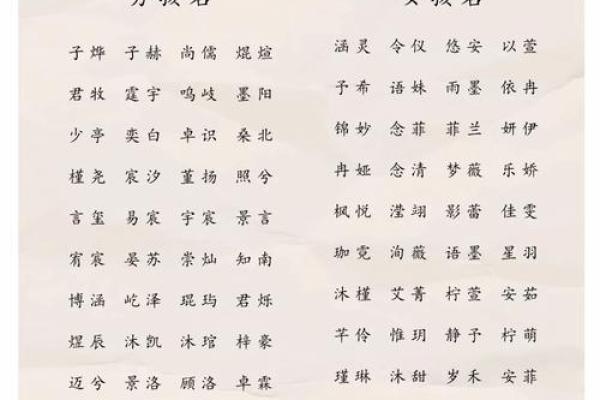 男孩名
子烨 子赫 尚儒 焜煊
君牧 霆宇 鸣岐 墨阳
少亭 奕白 卓识 桑北
槿尧 宸汐 董扬 照兮
言玺 易宸 宇宸 景言
宥宸 晏苏 崇灿 知南
博涵 屹泽 琨玙 君烁
煜辰 沐凯 沐琯 梓豪
迈兮 景洛 顾洛 卓霖
女孩名
涵灵 令仪 悠安 以萱
予希 语姝 雨墨 依冉
锦妙 念菲 菲兰 妍伊
冉娅 念清 梦薇 乐娇
枫悦 滢翊 影蕾 佳雯
珈霓 洵薇 语墨 星羽
沐槿 艾菁 柠萱 安茹
芊伶 惟玥 静予 柠萌
瑾琳 沐甜 岁禾 安菲